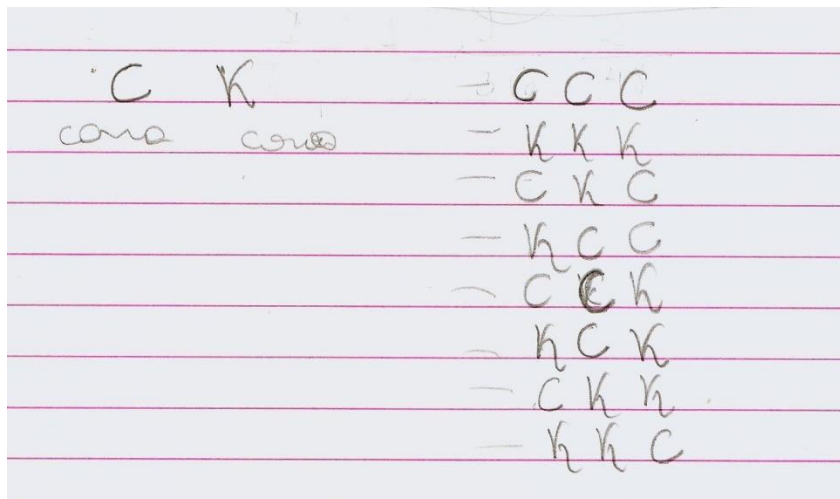 C K
cara coroa
- C C C
- K K K
- C K C
- K C C
- C C K
- K C K
- C K K
- K K C